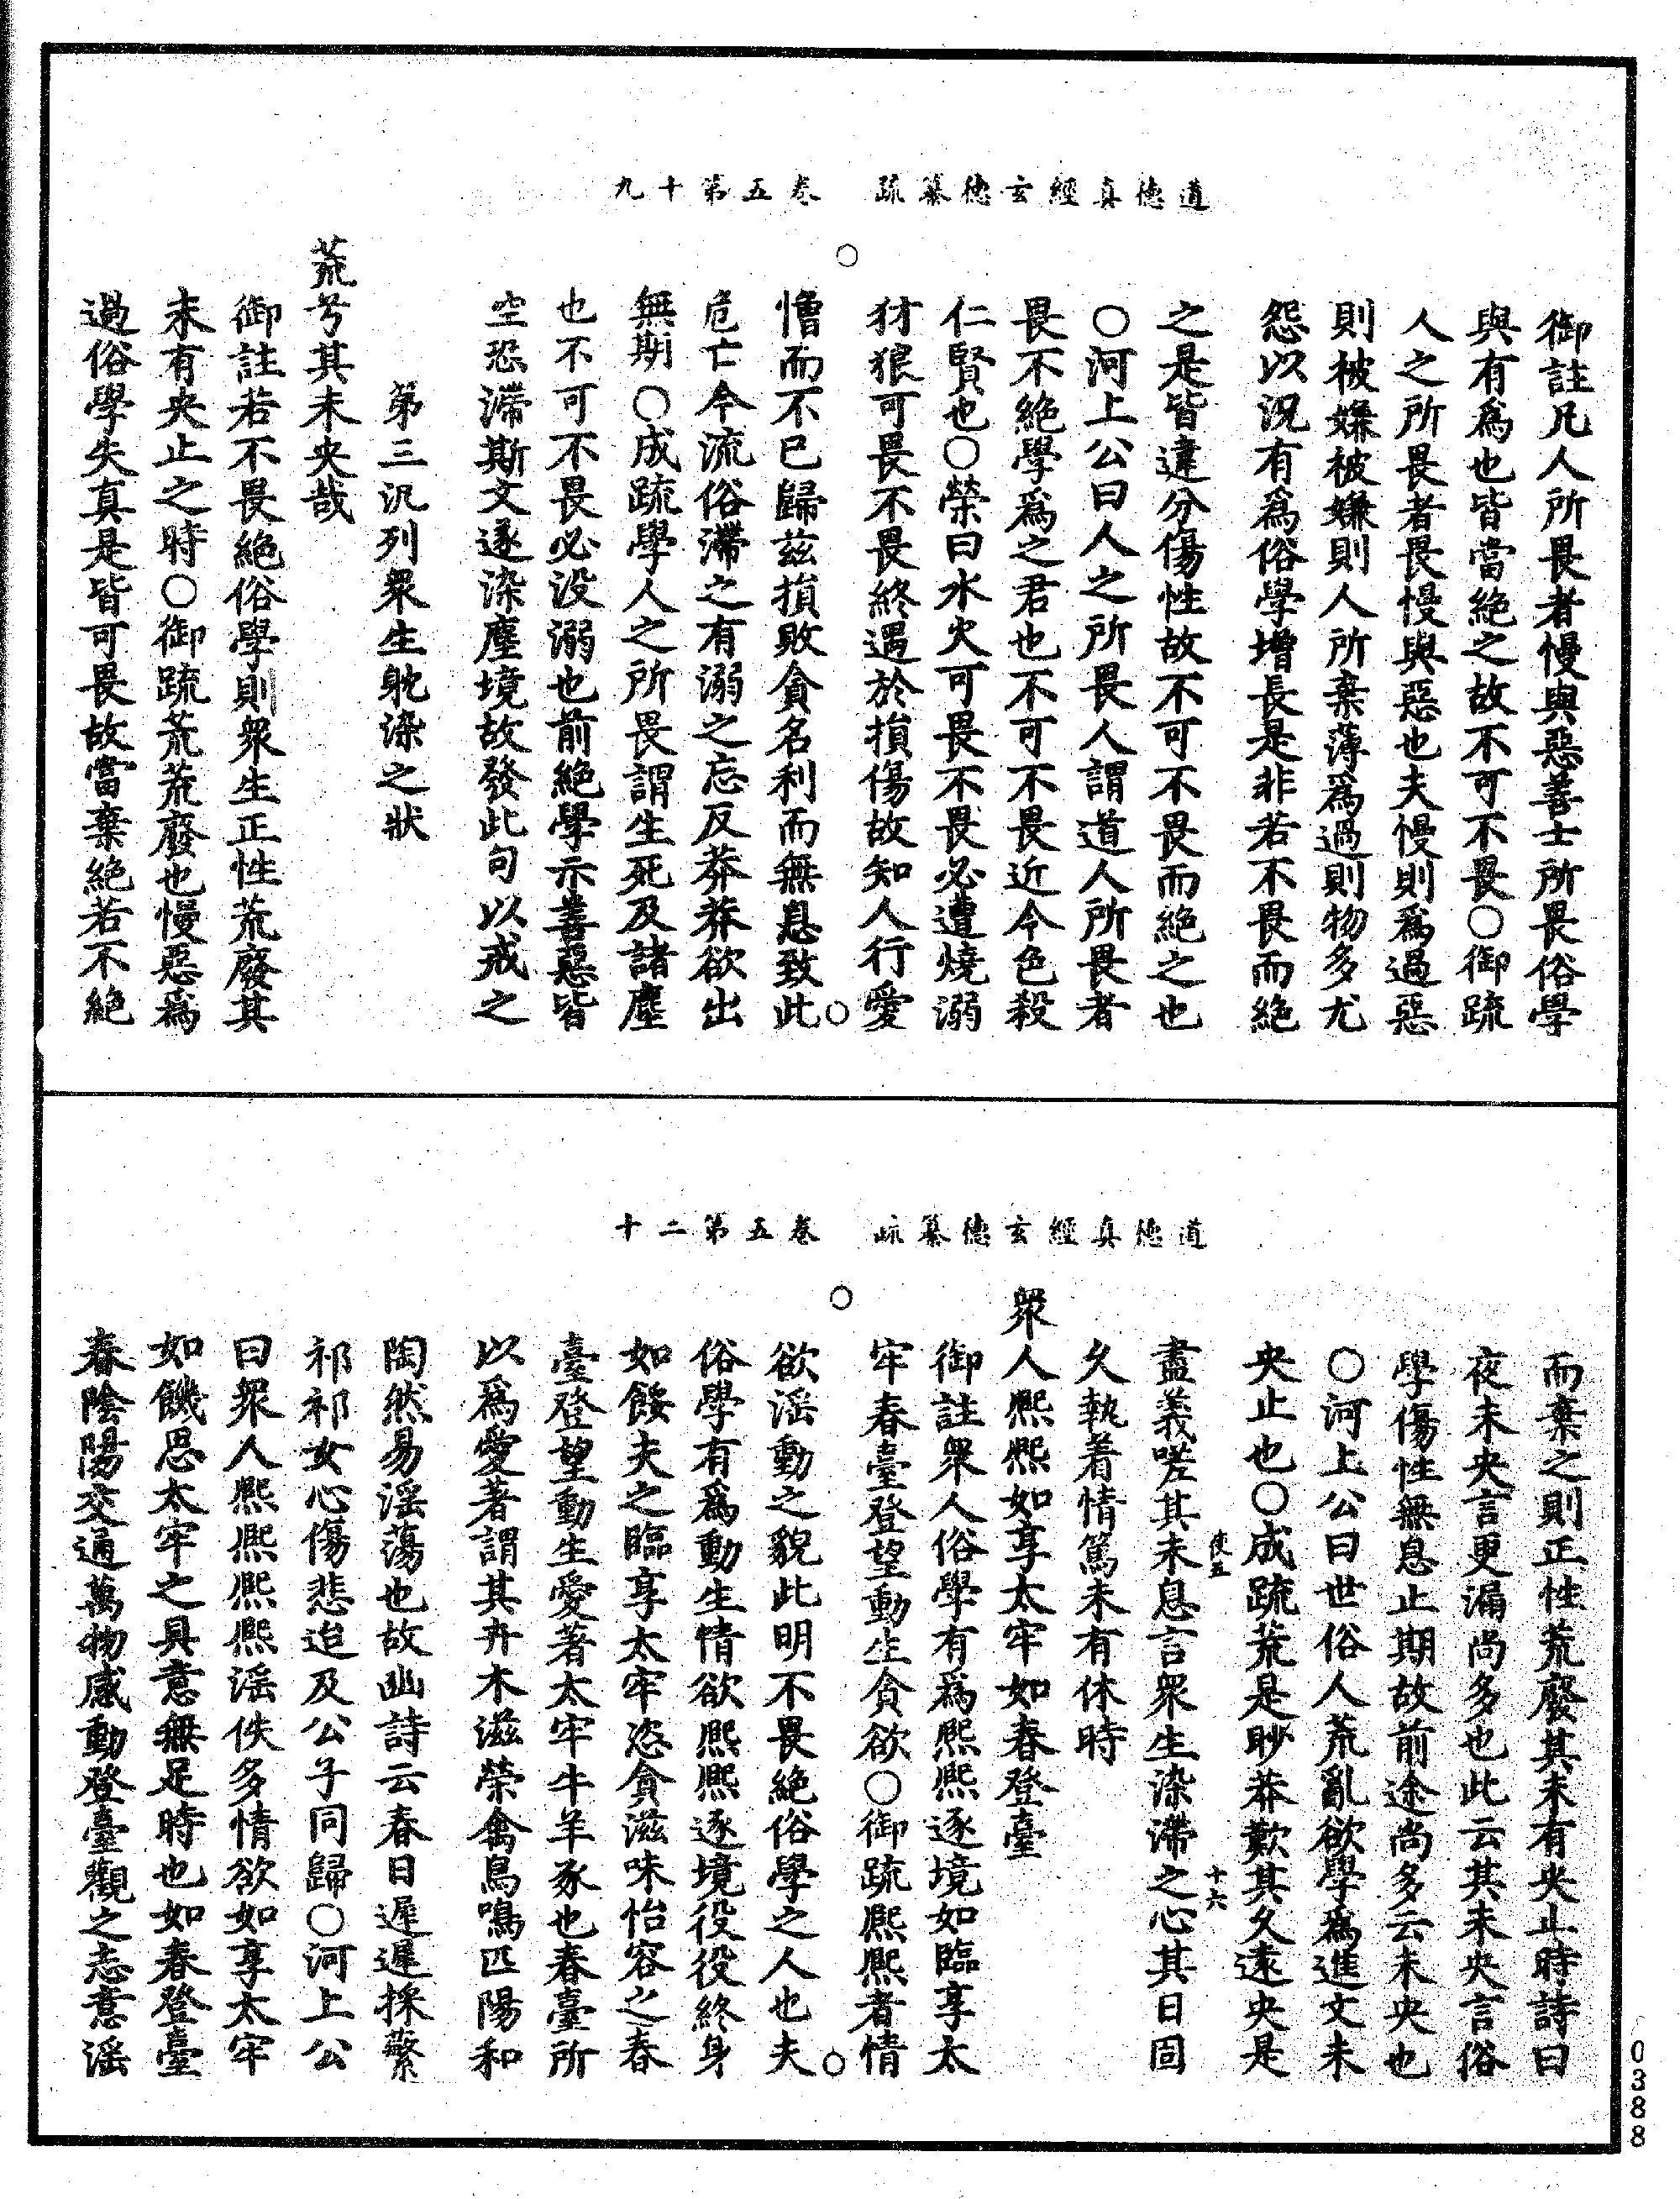 道德真經玄德纂疏　卷五第十九
御註凡人所畏者慢與惡善士所畏俗學
與有爲也皆當絶之故不可不畏○御疏
人之所畏者畏慢與惡也夫慢則爲過惡
則被嫌被嫌則人所棄薄爲過則物多尤
怨以況有爲俗學增長是非若不畏而絶
之是皆違分傷性故不可不畏而絶之也
○河上公曰人之所畏人謂道人所畏者
畏不絶學爲之君也不可不畏近令色殺
仁賢也○榮曰水火可畏不畏必遭燒溺
犲狼可畏不畏終遇於損傷故知人行愛
憎而不已歸茲損敗貪名利而無息致此
危亡今流俗滯之有溺之忘反莽莽欲出
無期○成疏學人之所畏謂生死及諸塵
也不可不畏必没溺也前絶學示善惡皆
空恐滯斯文遂染塵境故發此句以戒之
第三汎列衆生躭染之狀
荒兮其未央哉
御註若不畏絶俗學則衆生正性荒廢其
未有央止之時○御疏荒荒廢也慢惡爲
過俗學失真是皆可畏故當棄絶若不絶
道德真經玄德纂疏　卷五第二十
而棄之則正性荒廢其未有央止時詩曰
夜未央言更漏尚多也此云其未央言俗
學傷性無息止期故前途尚多云未央也
○河上公曰世俗人荒亂欲學爲進文未
央止也○成疏荒是眇莽歎其久遠央是
使五　十六
盡義嗟其未息言衆生染滯之心其日固
久執着情篤未有休時
衆人熈熈如享太牢如春登臺
御註衆人俗學有爲熈熈逐境如臨享太
牢春臺登望動生貪欲○御疏熈熈者情
欲滛動之貌此明不畏絶俗學之人也夫
俗學有爲動生情欲熈熈逐境役役終身
如餒夫之臨享太牢恣貪滋味怡容之春
臺登望動生愛著太牢牛羊豕也春臺所
以爲愛著謂其卉木滋榮禽鳥鳴匹陽和
陶然易滛蕩也故豳詩云春日遲遲採蘩
祁祁女心傷悲迨及公子同歸○河上公
曰衆人熈熈熈熈滛佚多情欲如享太牢
如饑思太牢之具意無足時也如春登臺
春陰陽交通萬物感動登臺觀之志意滛
0388